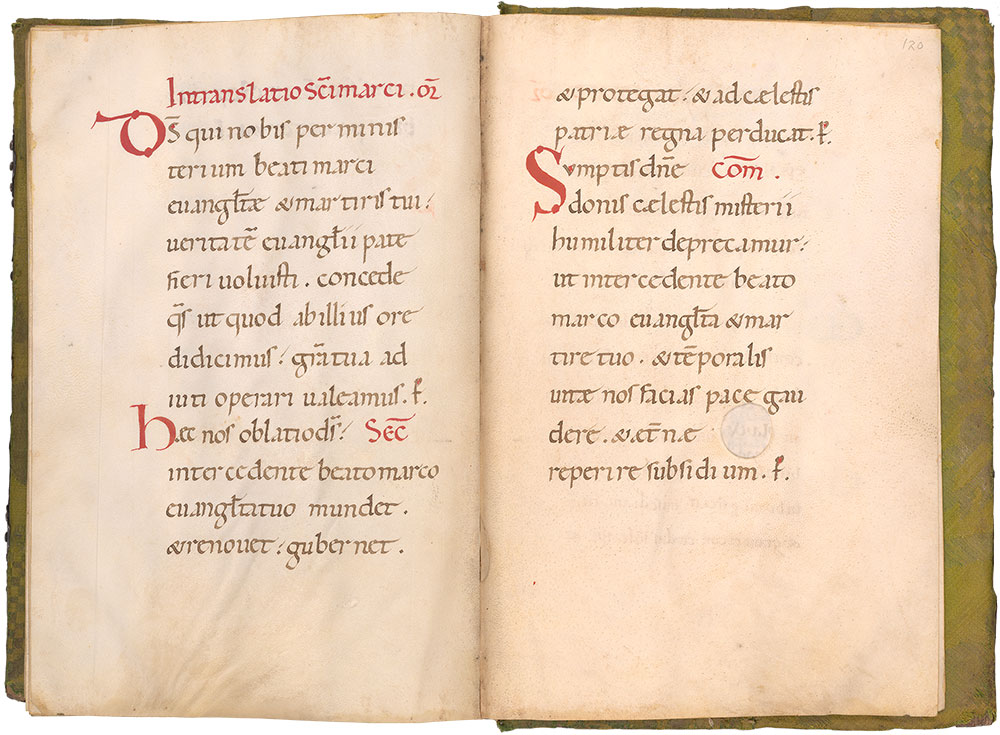 In translatio Sc̄i marci . or̄
DS̄ qui nobis per minis
terium beati marci
euangl̄tæ & martiris tui ;
ueritatē euangl̄ii pate
fieri uoluisti . concede
q̄s ut quod ab illius ore
didicimus ; gr̄a tua ad
iuti operari ualeamus . P̄.
Hæc nos oblatio ds̄ ; Sec̄
intercedente beato marco
euangl̄ta tuo mundet .
& renouet ; gubernet .
120
& protegat ; & ad cælestis
patriæ regna perducat . P̄.
Sumptis dn̄e Com̄ .
donis cælestis misterii
humiliter deprecamur ;
ut intercedente beato
marco euangl̄ta & mar
tire tuo . & tēporalis
uitæ nos facias pace gau
dere . & æt̄næ
reperire subsidium . P̄.